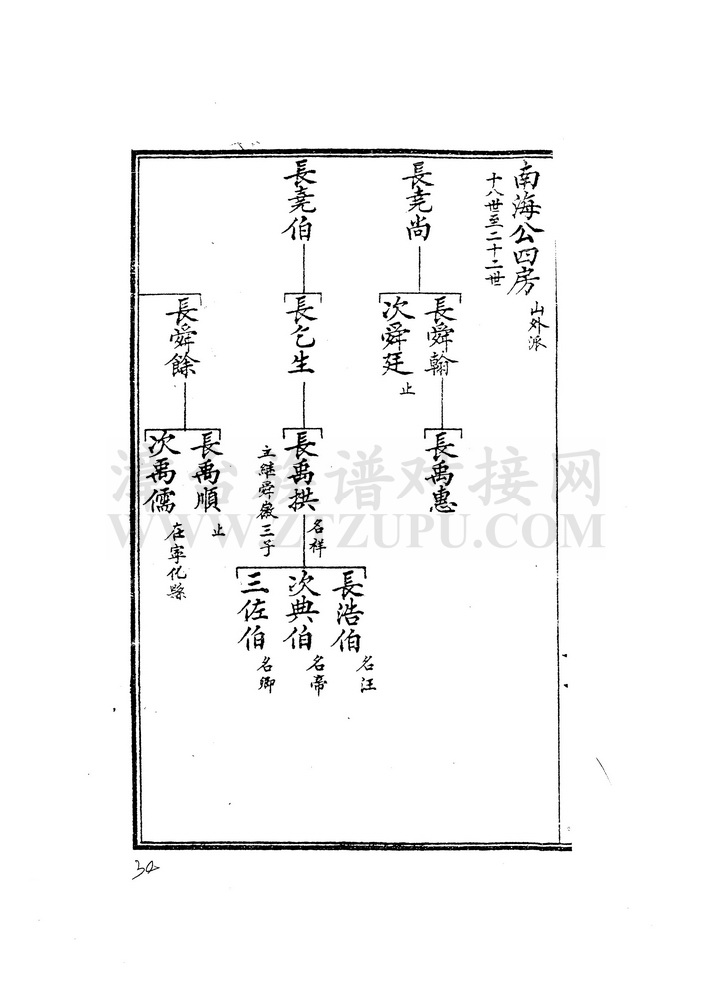 南海公四房
十八世至二十二世
山外派
長堯尚
長舜翰
次舜廷
止
長禹惠
長堯伯
長乞生
長禹拱
名祥
立継舜徽三子
長浩伯
名汪
次典伯
名帝
三佐伯
名卿
長舜餘
長禹順
止
次禹儒
在寧化縣
WWW.ZTZUPU.COM
34